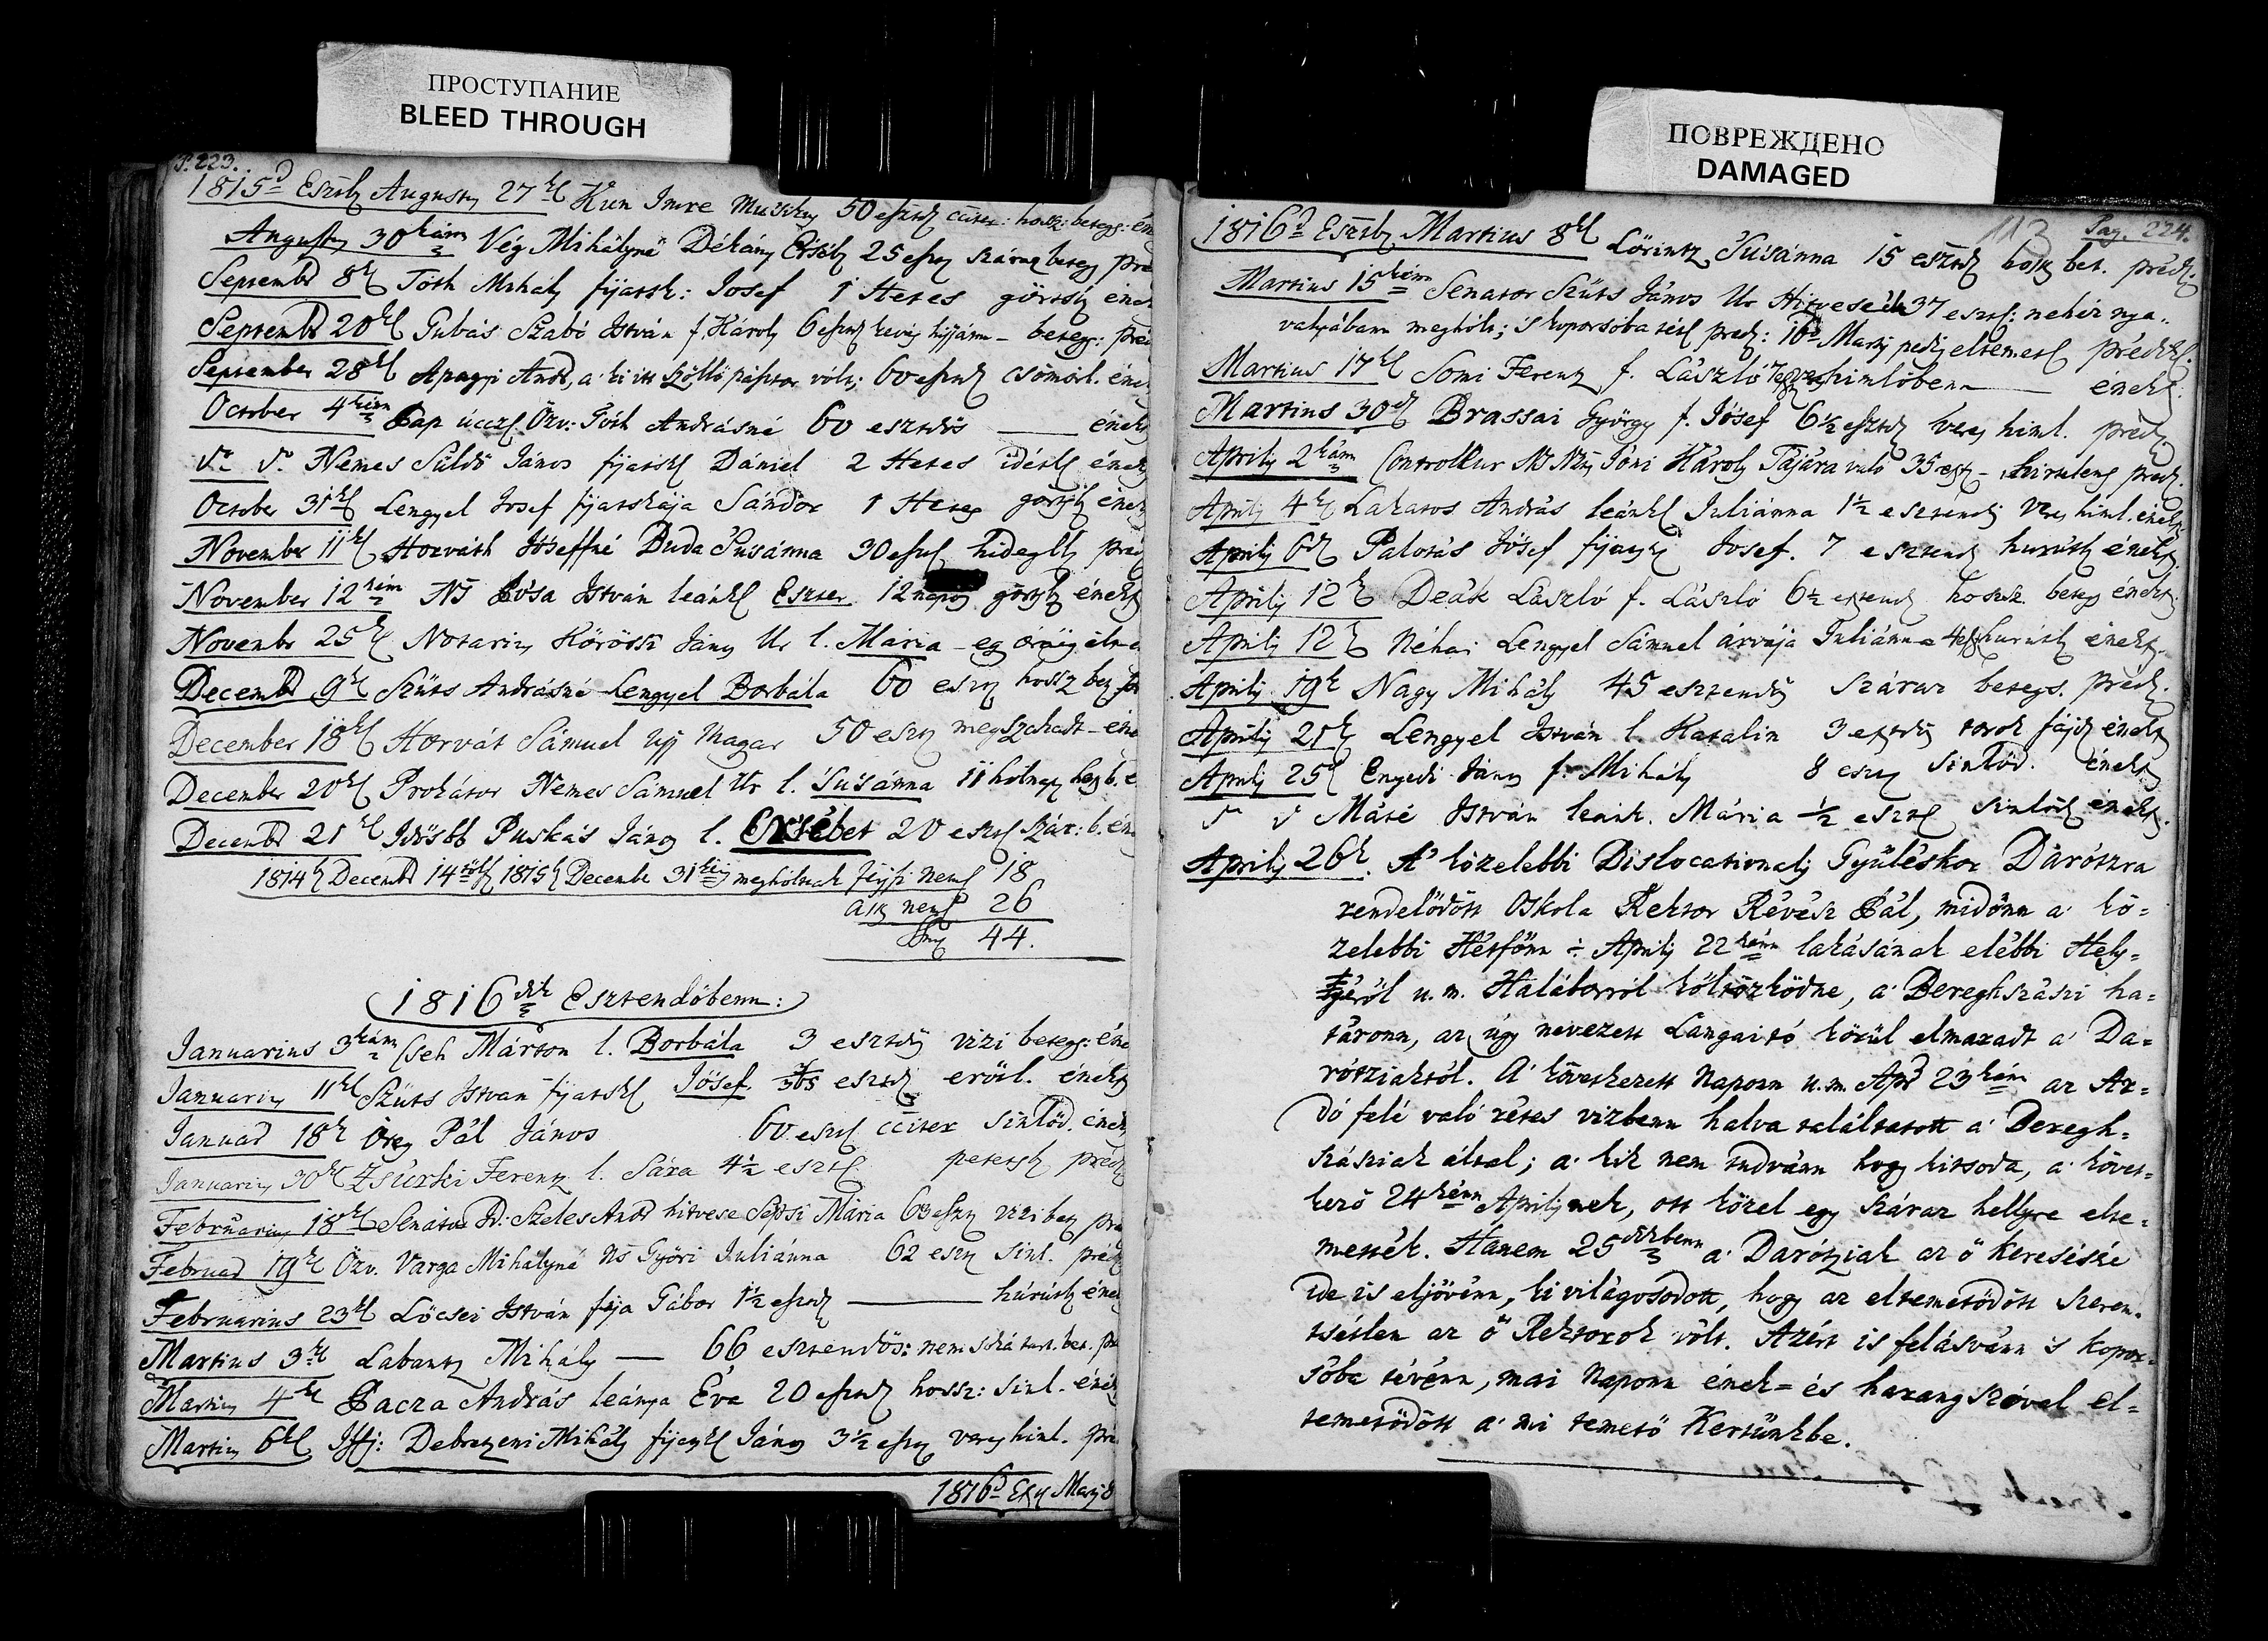 ПРОСТУПАНИЕ
BLEED THROUGH
ПОВРЕЖДЕНО
DAMAGED
P. 223.
1815d Esztb Augusty 27k Kun Imre 50 esztd hosz: betegs:
Augusty 30kán Vég Mihályné Dékány Erséb 25 száraz beteg
Septembr 8k Tóth Mihály fijatsk: Josef 1 Hetes görtsb
Septembr 20k Gubás Szabó István f. Károly 6 beteg:
September 28k Apagyi Andr, a' ki itt szőllő pásztor vólt; 60 csömörl.
October 4kén Pap Özv: Tóth Andrásné 60 esztdős — énekl
Nemes Süldő János fijatsk Dániel 2 Hetes énekl
October 31k Lengyel Josef fijatskája Sándor 1 Hetes görtsb énekl
November 11k Horváth Jóseffné Duda Susánna 30 hideglb
November 12kén NS Jósa István leánk Eszter 12 napos görtsb énekl
Novembr 25k Notarius Körössi János Ur l. Mária – eg óráig élt
Decembr 9k Szüts Andrásné Lengyel Borbála 60 eszt hossz bet
December 18k Horvát Sámuel Uj Magar 50 eszt megszakadt –
December 20k Prokátor Nemes Sámuel Ur l. Susánna 11 hólnap
Decembr 21k Idősbb Puskás János l. Ersébet 20 eszt szár: b.
1814 Decembr 14től 1815 Decembr 31kig megholtak férjfi nem 18
asz nem 26
Sum 44.
1816dik Esztendőbenn:
Januarius 3kán Cseh Márton l. Borbála 3 esztds vizi betegs:
Januarius 11k Szüts Istvan fijatsk Jósef. eszt erősl. énekl
Januar 18k Öreg Pál János 60 eszt sinlőd.
Januarius 30k Zsurki Ferentz l. Sára 4½ eszt préd
Februarius 18k Senator Szeles Andr hitvese Sepsi Mária 63 vizi bet
Februar 19k Özv. Varga Mihályné NS Győri Juliánna 62 eszt sinl. préd
Februarius 23k Lőcsei István fija Gábor 1½ — hurutb
Martius 3k Labantz Mihály — 66 esztendős:
Martius 4k Pacza András leánya Éva 20 hossz: sinl.
Martius 6k Iffj: Debretzeni Mihály fijatsk János 3½ veres himl.
1816d
113 Pag. 224.
1816d Esztb Martius 8k Lőrintz Susánna 15 esztd hosz bet. prédk.
Martius 15kén Senator Szüts János Ur Hitvese 37 eszt: nehéz nya-
valyábann meghólt; 's koporsóba tétel pred: 16d Marty pedig eltemet prédk.
Martius 17k Somi Ferentz f. László himlőbenn — énekl.
Martius 30d Brassai György f. Jósef 6½ eszt veres himl. préd
Aprilis 2kán Controllur Jóni Károly való 35 eszt – pred.
Aprilis 4k Lakatos András leánk Juliánna 1½ esztendős veres himl. énekl
Aprilis 6k Palotás Jósef fijatsk Josef. 7 esztend hurutb énekl
Aprilis 12k Deák László f. László 6½ esztend hossz. betegs énekl
Aprilis 12k Néhai Lengyel Sámuel árvája Juliánna 4 hurutb énekl
Aprilis 19k Nagy Mihály 45 esztendős száraz betegs. prédk.
Aprilis 21k Lengyel István l. Katalin 3 esztds torok fájd énekl
Aprilis 25k Enyedi János f. Mihály 8 eszt sinlőd. énekl
Máté István leánk. Mária ½ eszt sinlőd énekl
Aprilis 26k. A' közelebbi Dislocationalis Gyüléskor Darótzra
rendelődött Oskola Rektor Révész Pál, midőnn a' kö=
zelebbi Hétfőnn ÷ Aprilis 22kénn lakásának elébbi Hely=
ségéről u.m. Halábórról költözködne, a' Bereghszászi ha=
táronn, az úgy nevezett Langaitó körül elmaradt a' Da=
rótziaktól. A' következett Naponn u.m. Apr 23kán az Ar=
dó felé való rétes vizbenn halva találtatott a' Beregh=
szásziak által; a' kik nem tudvánn hogy kitsoda, a' követ=
kező 24kénn Aprilisnek, ott közel egy száraz hellyre elte=
mették. Hanem 25dikbenn a' Darótziak az ő keresésére
ide is eljővénn, ki világosodott, hogy az eltemetődött szeren-
tsétlen az ő Rektorok vólt. Azért is felásvánn 's kopor=
sóba tévénn, mai Naponn ének= és harangszóval el=
temetődött a' mi temető Kertünkbe.